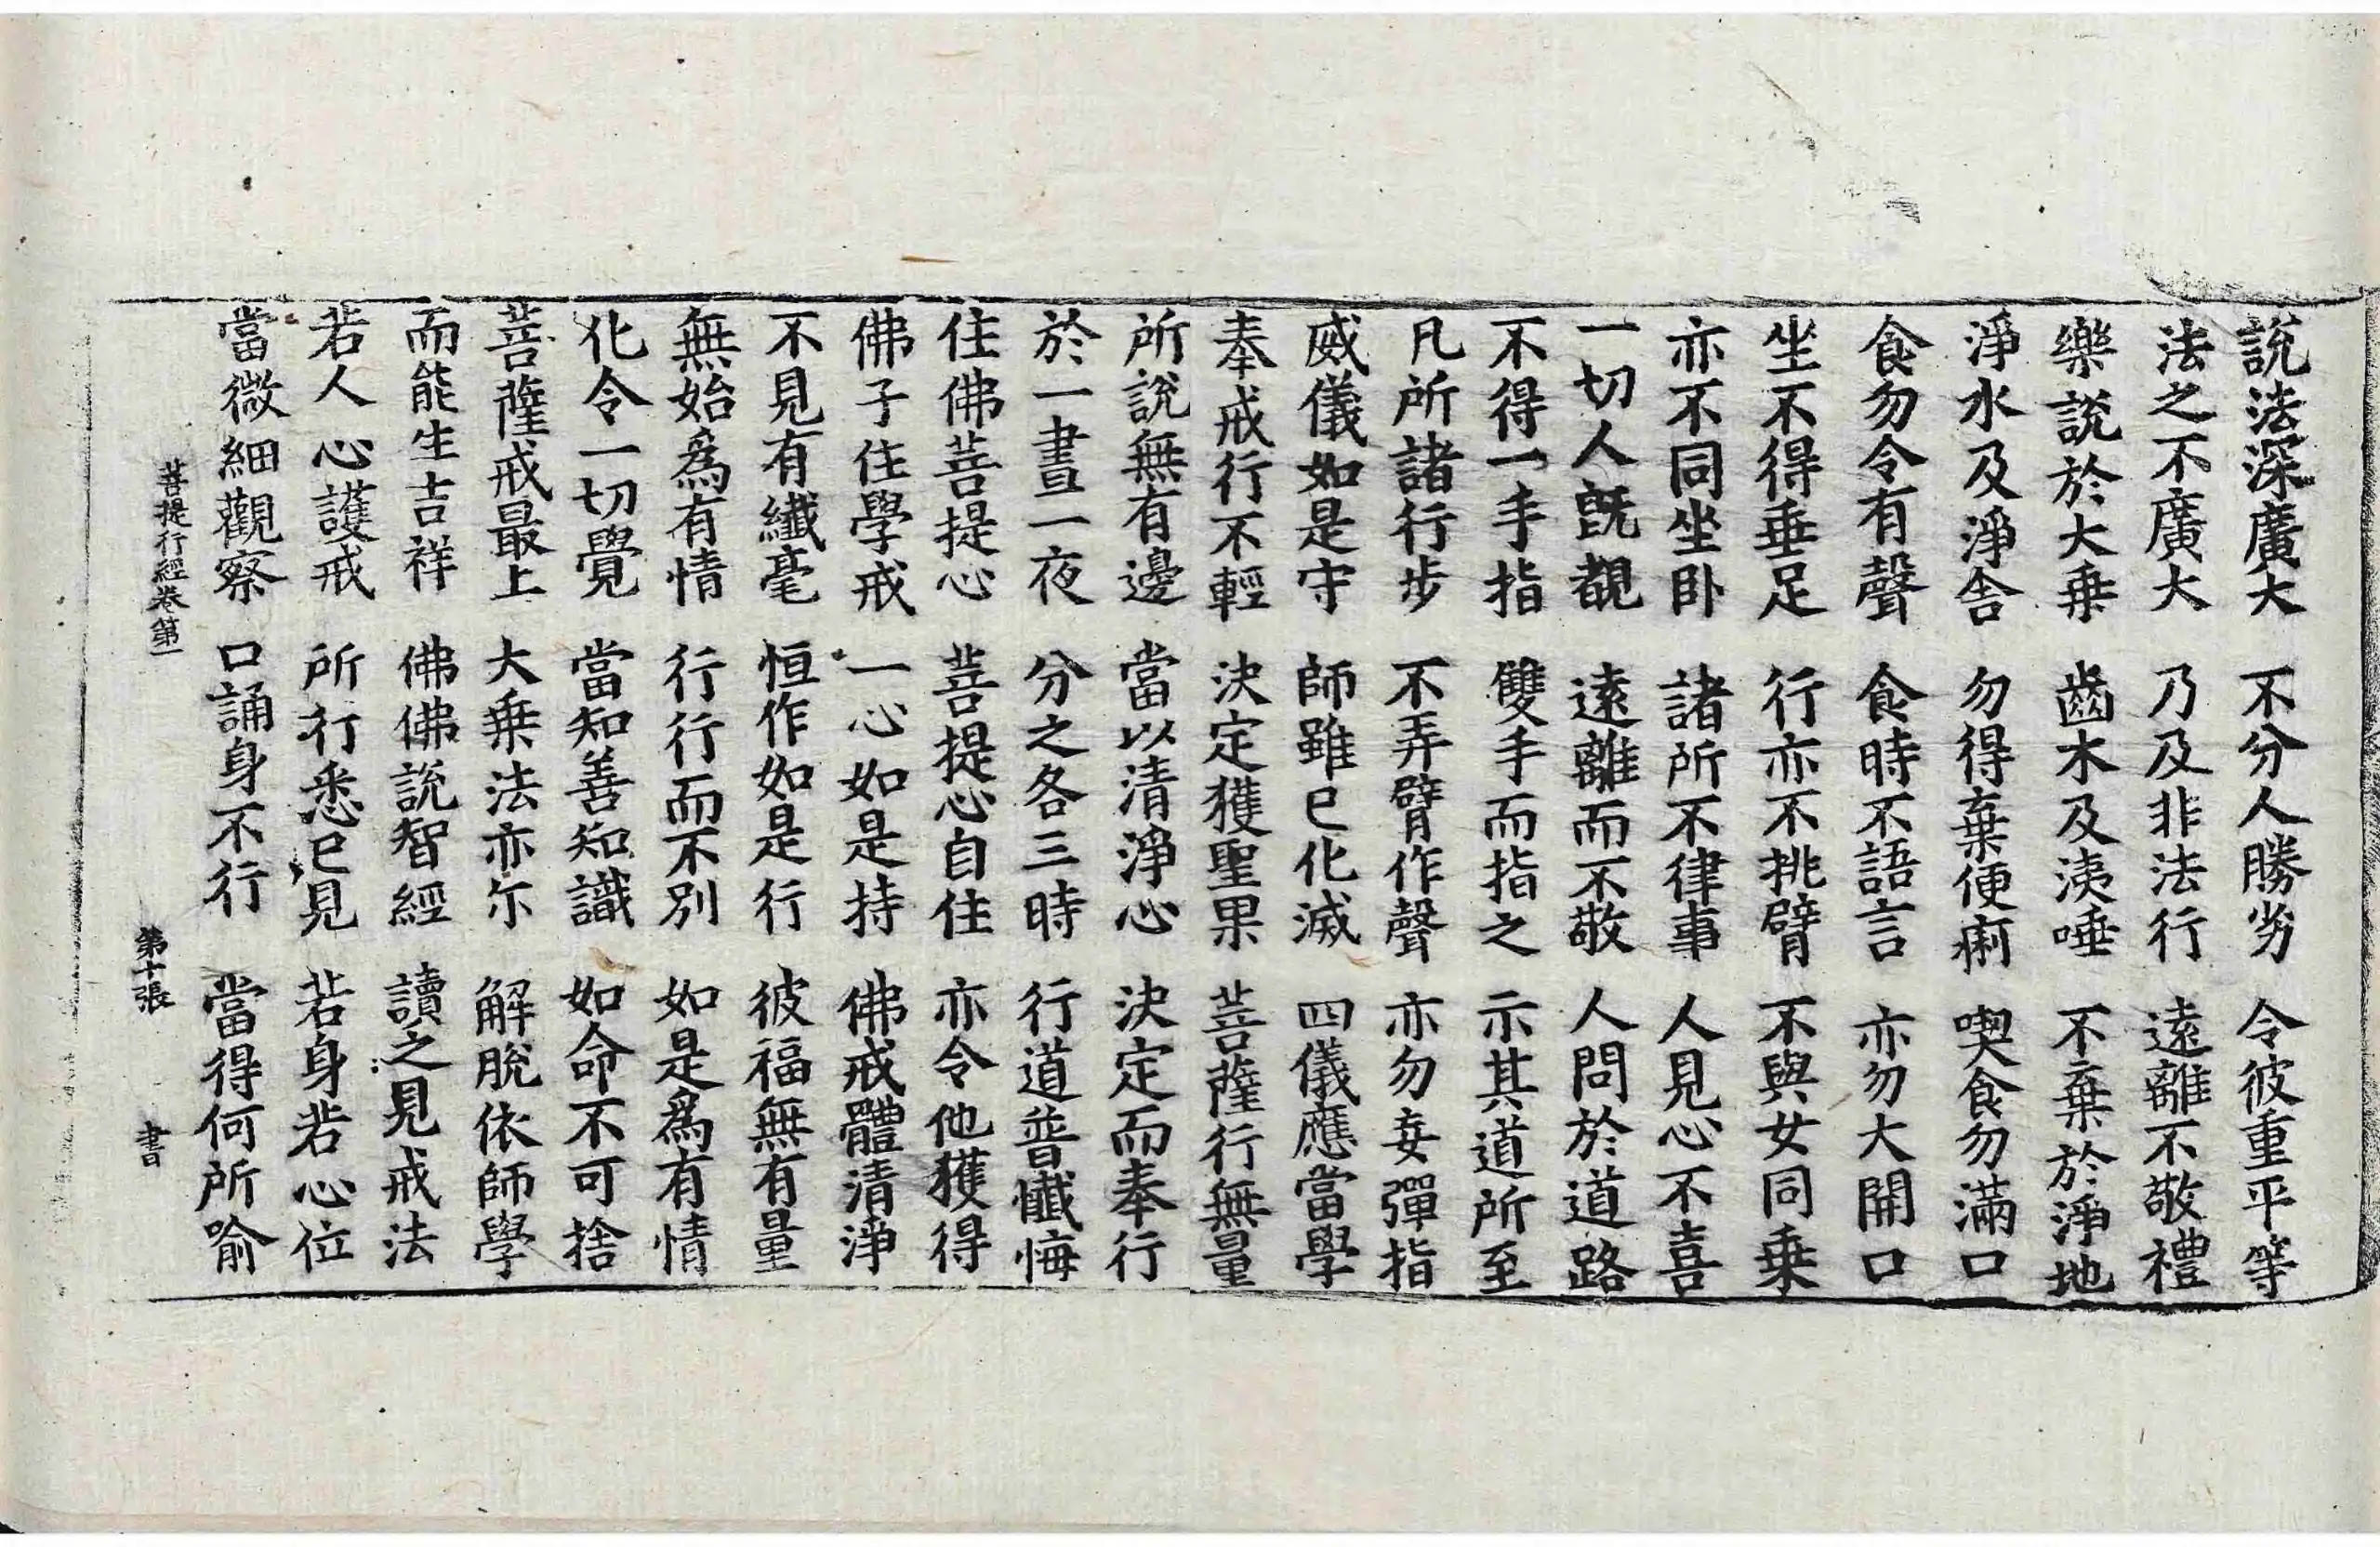 說法深廣大　不分人勝劣　令彼重平等
法之不廣大　乃及非法行　遠離不敬禮
樂說於大乗　齒木及洟唾　不棄於淨地
淨水及淨舎　勿得棄便痢　喫食勿滿口
食勿令有聲　食時不語言　亦勿大開口
坐不得垂足　行亦不挑臂　不與女同乗
亦不同坐卧　諸所不律事　人見心不喜
一切人旣覩　遠離而不敬　人問於道路
不得一手指　雙手而指之　示其道所至
凡所諸行步　不弄臂作聲　亦勿妄彈指
威儀如是守　師雖已化滅　四儀應當學
奉戒行不輕　決定獲聖果　菩薩行無量
所說無有邊　當以清淨心　決定而奉行
於一晝一夜　分之各三時　行道普懺悔
住佛菩提心　菩提心自住　亦令他獲得
佛子住學戒　一心如是持　佛戒體清淨
不見有纖毫　恒作如是行　彼福無有量
無始爲有情　行行而不別　如是爲有情
化令一切覺　當知善知識　如命不可捨
菩薩戒最上　大乗法亦尓　解脫依師學
而能生吉祥　佛佛說智經　讀之見戒法
若人心護戒　所行悉已見　若身若心位
當微細觀察　口誦身不行　當得何所喻
菩提行經卷第一　第十張　書